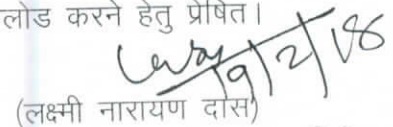 लोड करने हेतु प्रेषित।
9/2/18
(लक्ष्मी नारायण दास)